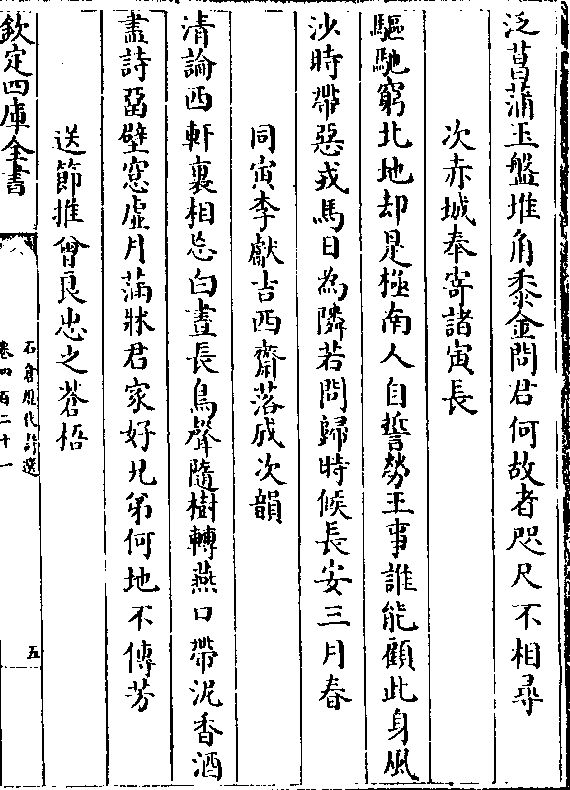 泛菖蒲玉盤堆角黍金問君何故者咫尺不相尋
次赤城奉寄諸寅長
驅馳窮北地却是極南人自誓勞王事誰能顧此身風
沙時帶惡戎馬日為隣若問歸時候長安三月春
同寅李獻吉西齋落成次韻
清論西軒裏相忘白晝長鳥聲隨樹轉燕口帶泥香酒
盡詩留壁窓虛月滿牀君家好兄弟何地不傳芳
送節推曾良忠之蒼梧
欽定四庫全書
石倉歷代詩選
卷四百二十一
五